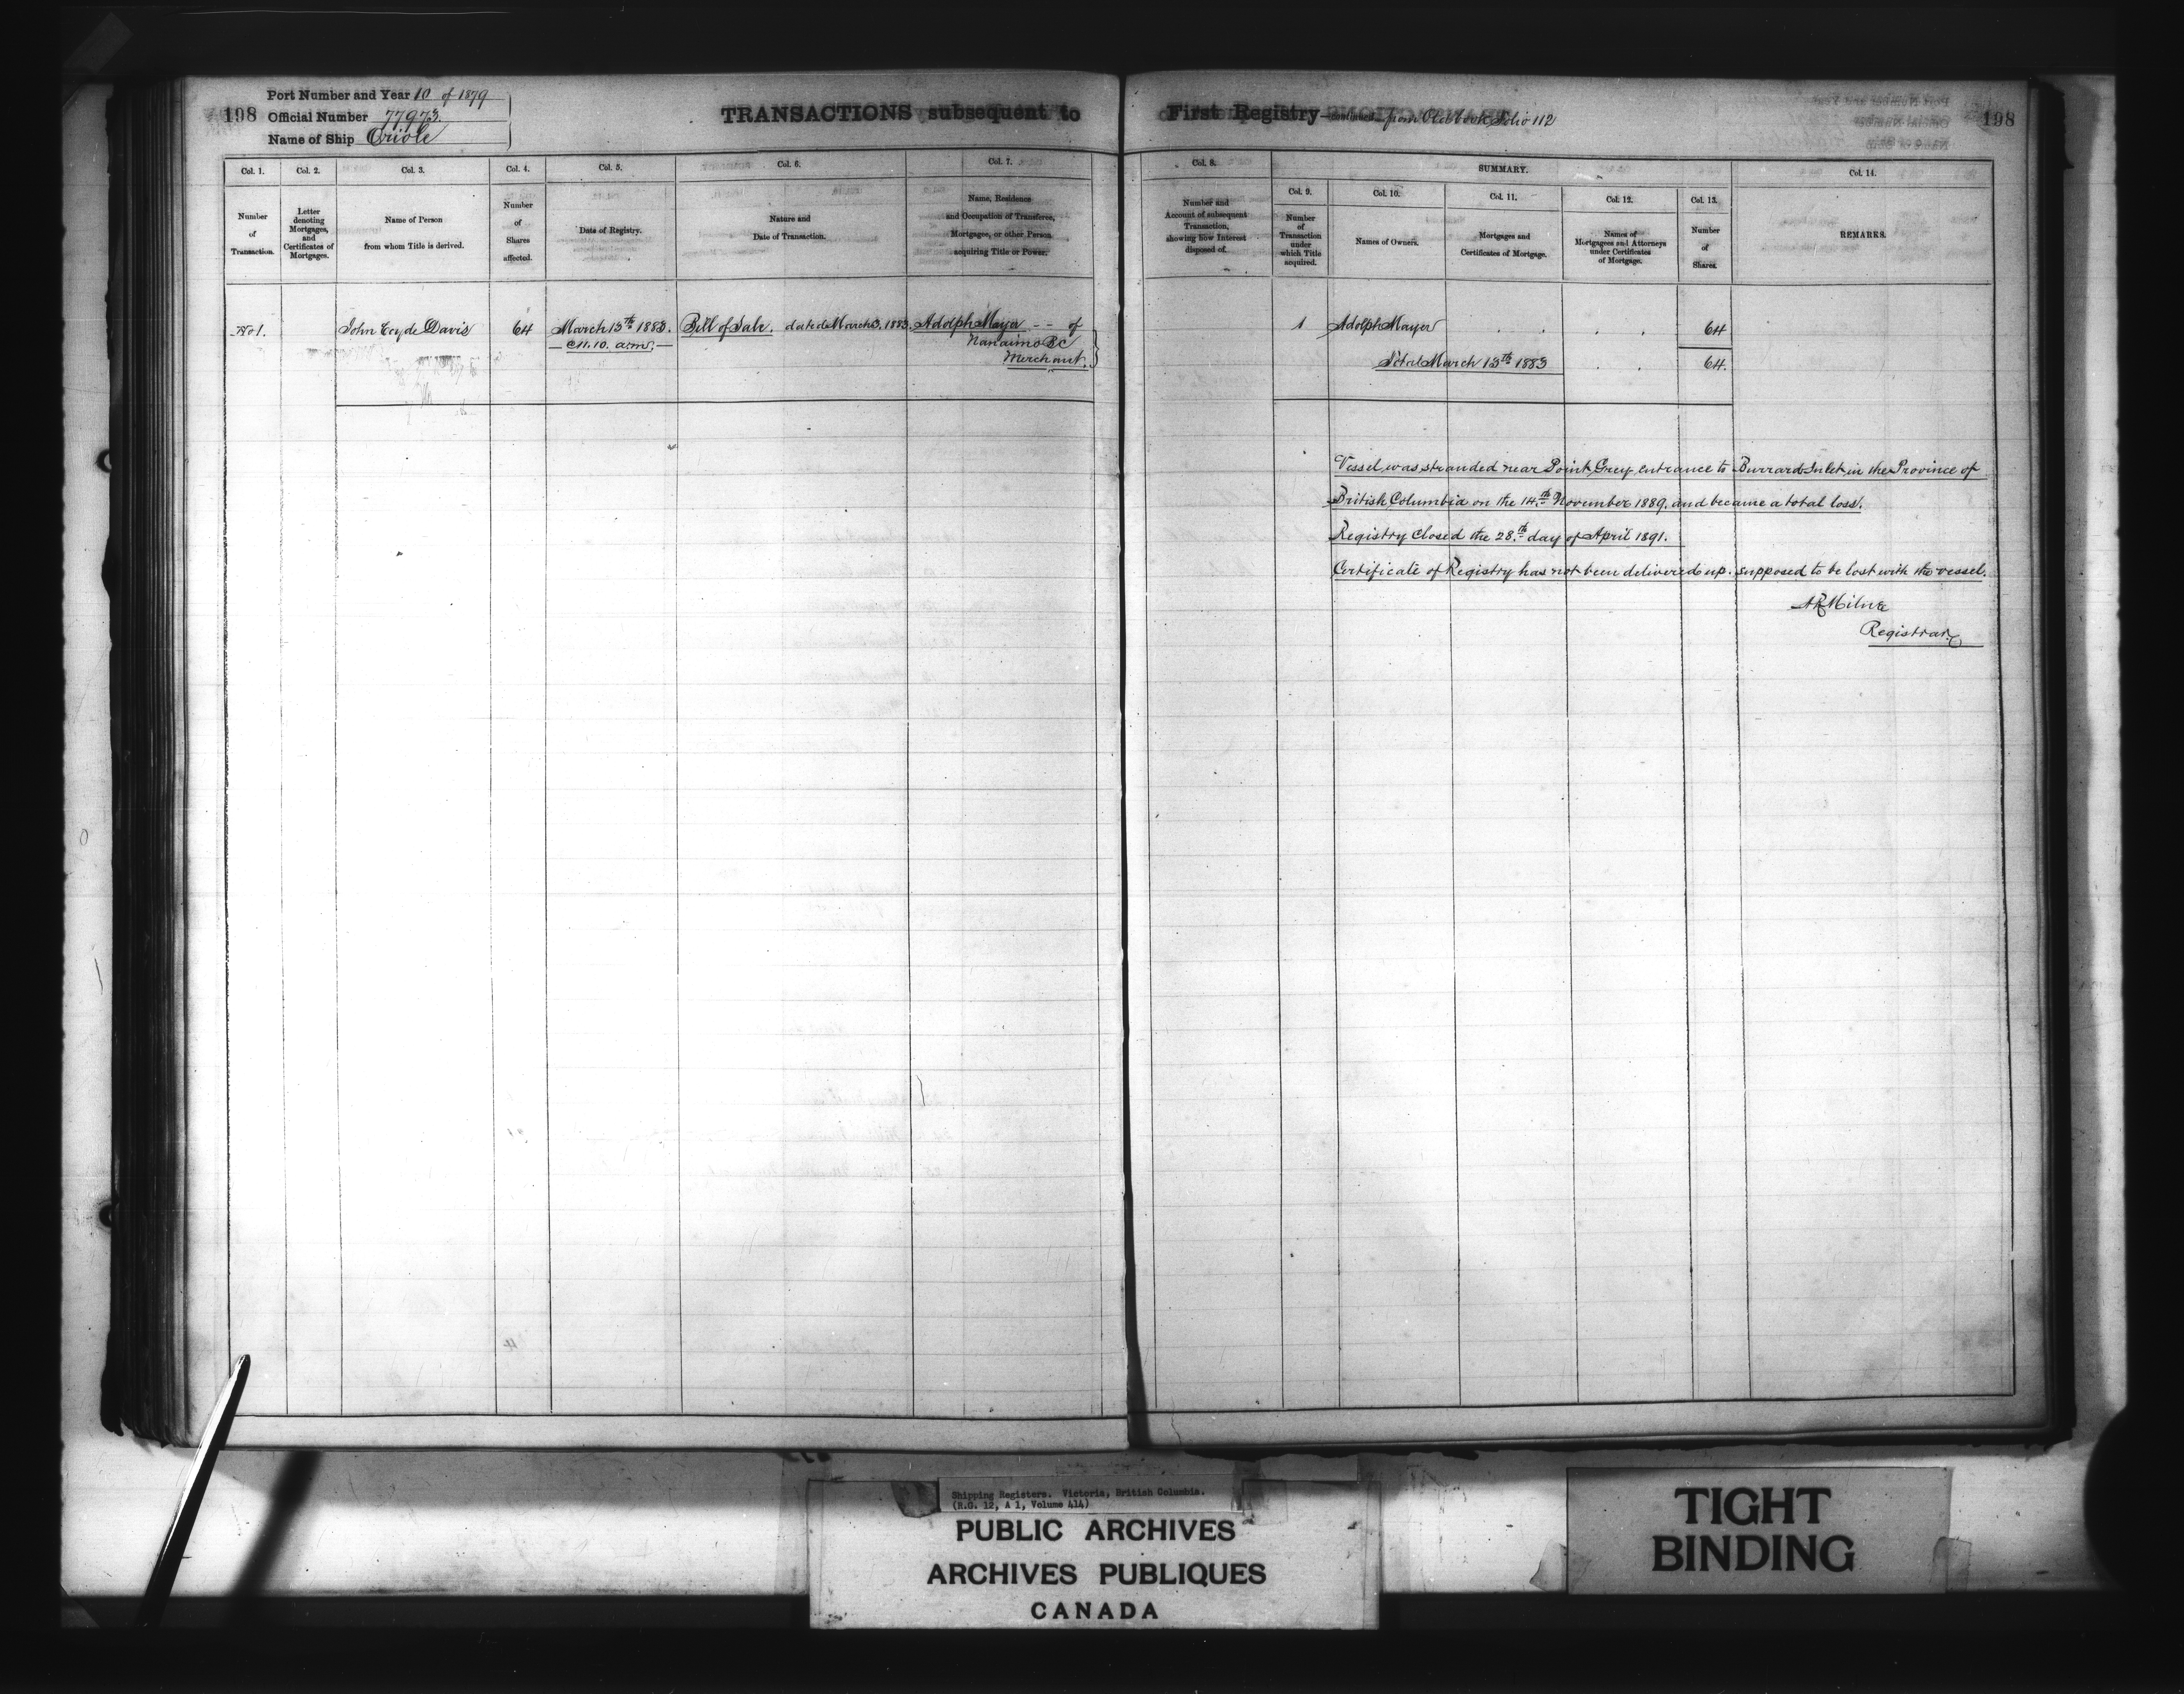 198
Port Number and Year 10 of 1879
Official Number 77973.
Name of Ship Oriole
TRANSACTIONS subsequent to First Registry— continued from Old book Folio 112
198
Col. 1.
Number
of
Transaction.
Col. 2.
Letter
denoting
Mortgages,
and
Certificates of
Mortgages.
Col. 3.
Name of Person
from whom Title is derived.
Col. 4.
Number
of
Shares
affected.
Col. 5.
Date of Registry.
Col. 6.
Nature and
Date of Transaction.
Col. 7.
Name, Residence
and Occupation of Transferee,
Mortgagee, or other Person
acquiring Title or Power.
Col. 8.
Number and
Account of subsequent
Transaction,
showing how Interest
disposed of.
SUMMARY.
Col. 9.
Number
of
Transaction
under
which Title
acquired.
Col. 10.
Names of Owners.
Col. 11.
Mortgages and
Certificates of Mortgage.
Col. 12.
Names of
Mortgagees and Attorneys
under Certificates
of Mortgage.
Col. 13.
Number
of
Shares.
Col. 14.
REMARKS.
No 1. John Davis 64 March 13th 1883. Bill of Sale. dated March 3. 1883. Adolph Mayer -- of
— @ 11.10. a.m. — Nanaimo BC
Merchant.
1 Adolph Mayer . . . . 64
Total March 13th 1883 . . 64.
Vessel was stranded near Point Grey entrance to Burrard Inlet in the Province of
British Columbia on the 14th November 1889. and became a total loss.
Registry Closed the 28th day of April 1891.
Certificate of Registry has not been delivered up. supposed to be lost with the vessel.
AR Milne
Registrar
Shipping Registers. Victoria, British Columbia.
(R.G. 12, A 1, Volume 414)
PUBLIC ARCHIVES
ARCHIVES PUBLIQUES
CANADA
TIGHT
BINDING